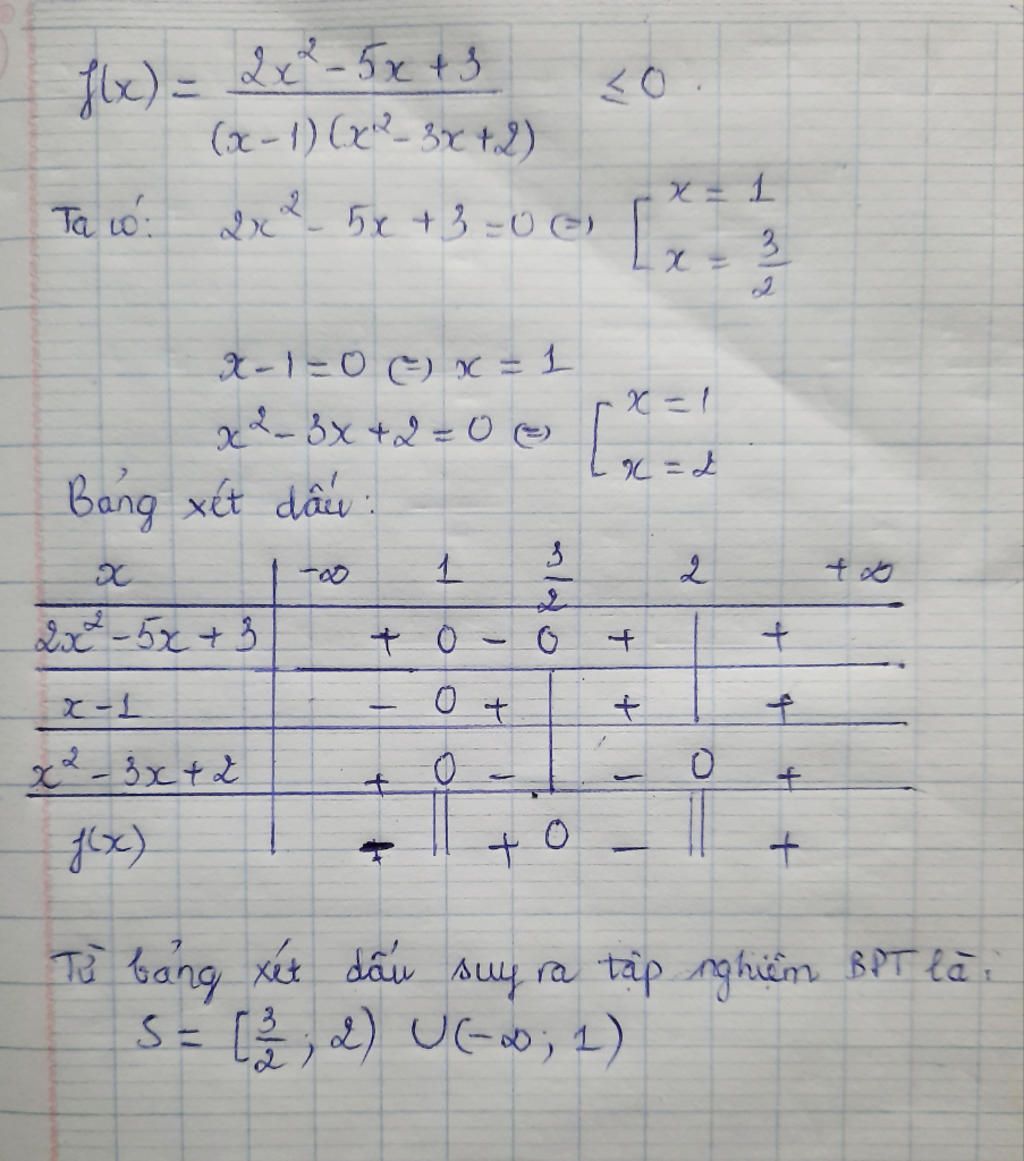 f(x) = (2x² - 5x + 3) / ((x - 1)(x² - 3x + 2)) ≤ 0.
Ta có: 2x² - 5x + 3 = 0 (=) [ x = 1
x = 3/2
x - 1 = 0 (=) x = 1
x² - 3x + 2 = 0 (=) [ x = 1
x = 2
Bảng xét dấu:
x | -∞ 1 3/2 2 +∞
2x² - 5x + 3 | + 0 - 0 + | +
x - 1 | - 0 + | + | +
x² - 3x + 2 | + 0 - | - 0 +
f(x) | - || + 0 - || +
Từ bảng xét dấu suy ra tập nghiệm BPT là:
S = [3/2; 2) ∪ (-∞; 1)